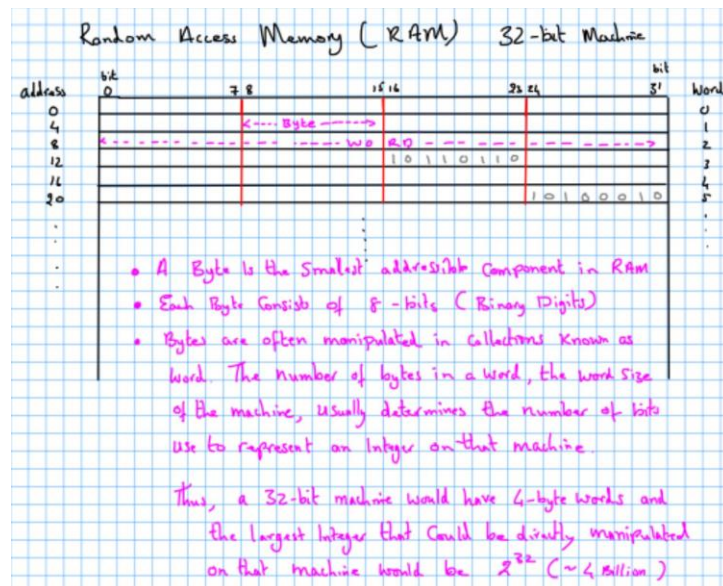 Random Access Memory (RAM) 32-bit Machine
address bit 0 7 8 15 16 23 24 bit 31 word
0 0
4 <---- Byte ----> 1
8 <---- WORD ----> 2
12 1 0 1 1 0 1 1 0 3
16 4
20 1 0 1 0 0 0 1 0 5
• A Byte Is the Smalest addressible Component in RAM
• Each Byte Consists of 8-bits (Binary Digits)
• Bytes are often manipulated in Collections Known as
word. The number of bytes in a word, the word size
of the machine, usually determines the number of bits
use to represent an Integer on that machine.
Thus, a 32-bit machine would have 4-byte words and
the largest Integer that Could be directly manipulated
on that machine would be 2^32 (~ 4 Billion)